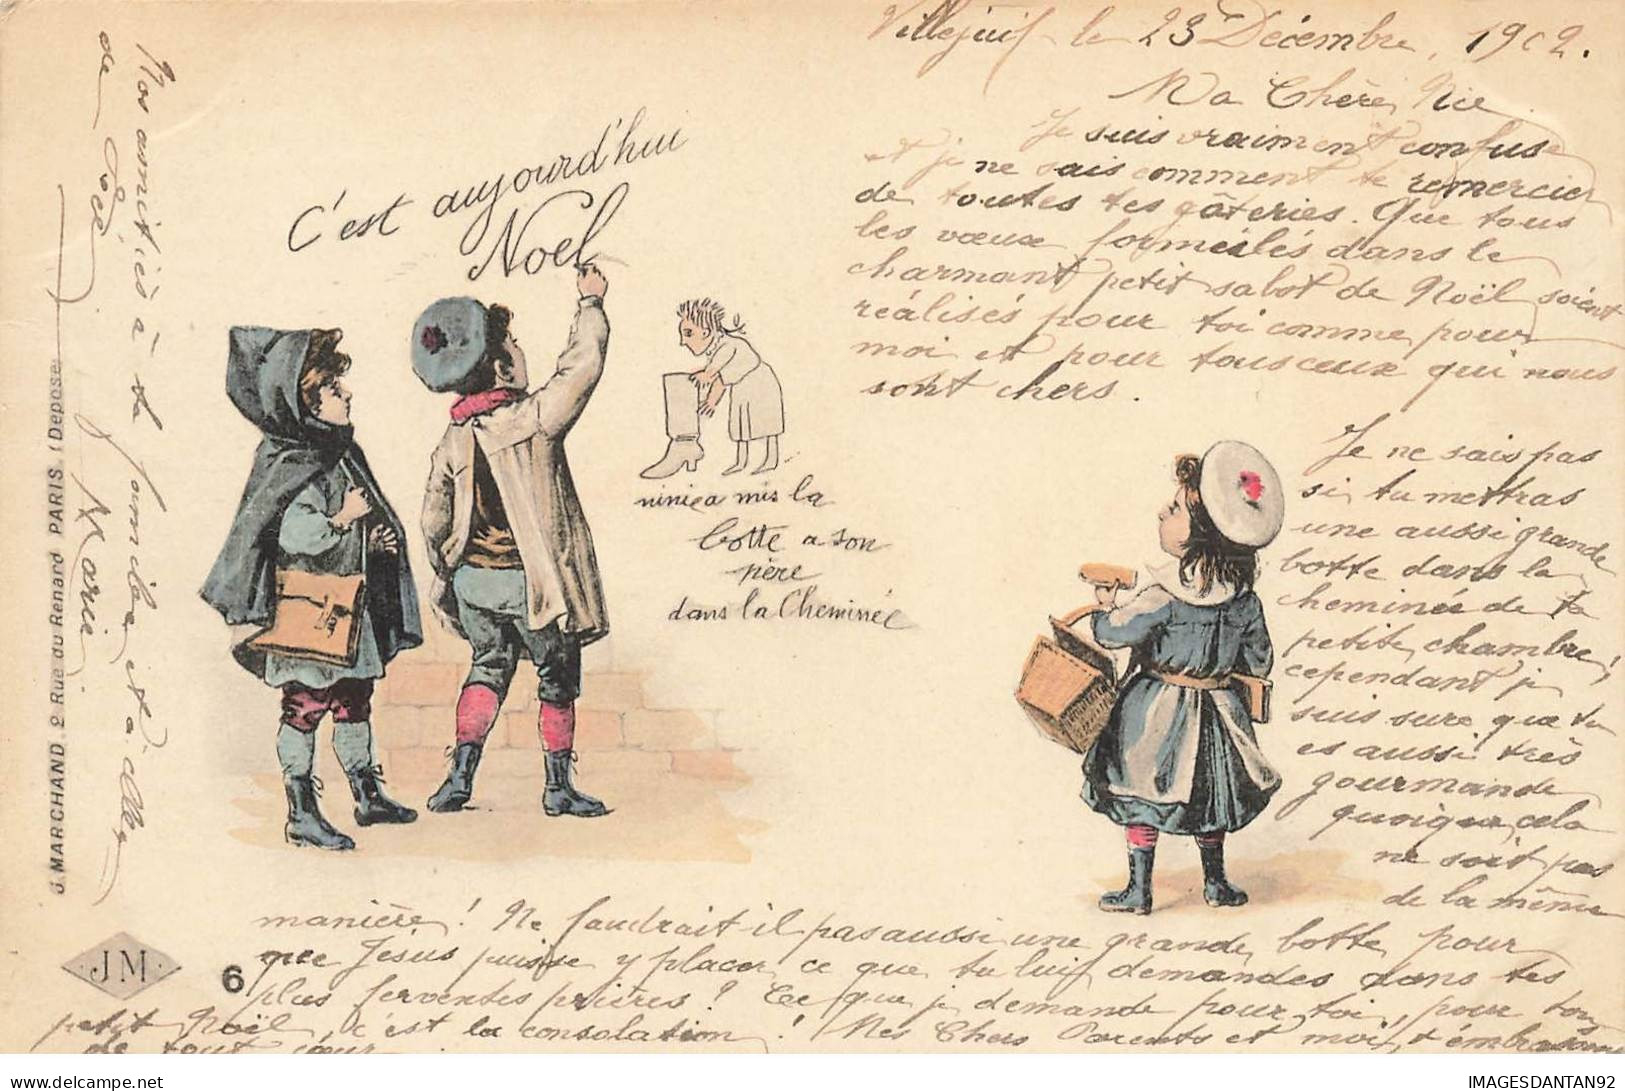 Villejuif le 23 Décembre, 1902.
Ma Chère Nie
Je suis vraiment confuse
et je ne sais comment te remercier
de toutes tes gâteries. Que tous
les vœux formulés dans le
charmant petit sabot de Noël soient
réalisés pour toi comme pour
moi et pour tous ceux qui nous
sont chers.
C'est aujourd'hui
Noel
ninie a mis la
botte a son
père
dans la Cheminée
Je ne sais pas
si tu mettras
une aussi grande
botte dans la
cheminée de ta
petite chambre,
cependant je
suis sure que tu
es aussi très
gourmande
quoique cela
ne soit pas
de la même
manière! Ne faudrait-il pas aussi une grande botte pour
que Jésus puisse y placer ce que tu lui demandes dans tes
plus ferventes prières? Ce que je demande pour toi, pour ton
petit Noël, c'est la consolation! Mes Chers Parents et moi, t'embrassons
de tout cœur
Nos amitiés à ta famille et à celle
de
Marie
J. MARCHAND. 2 Rue du Renard PARIS. (Déposé)
JM
6
IMAGESDANTAN92
https://www.delcampe.net